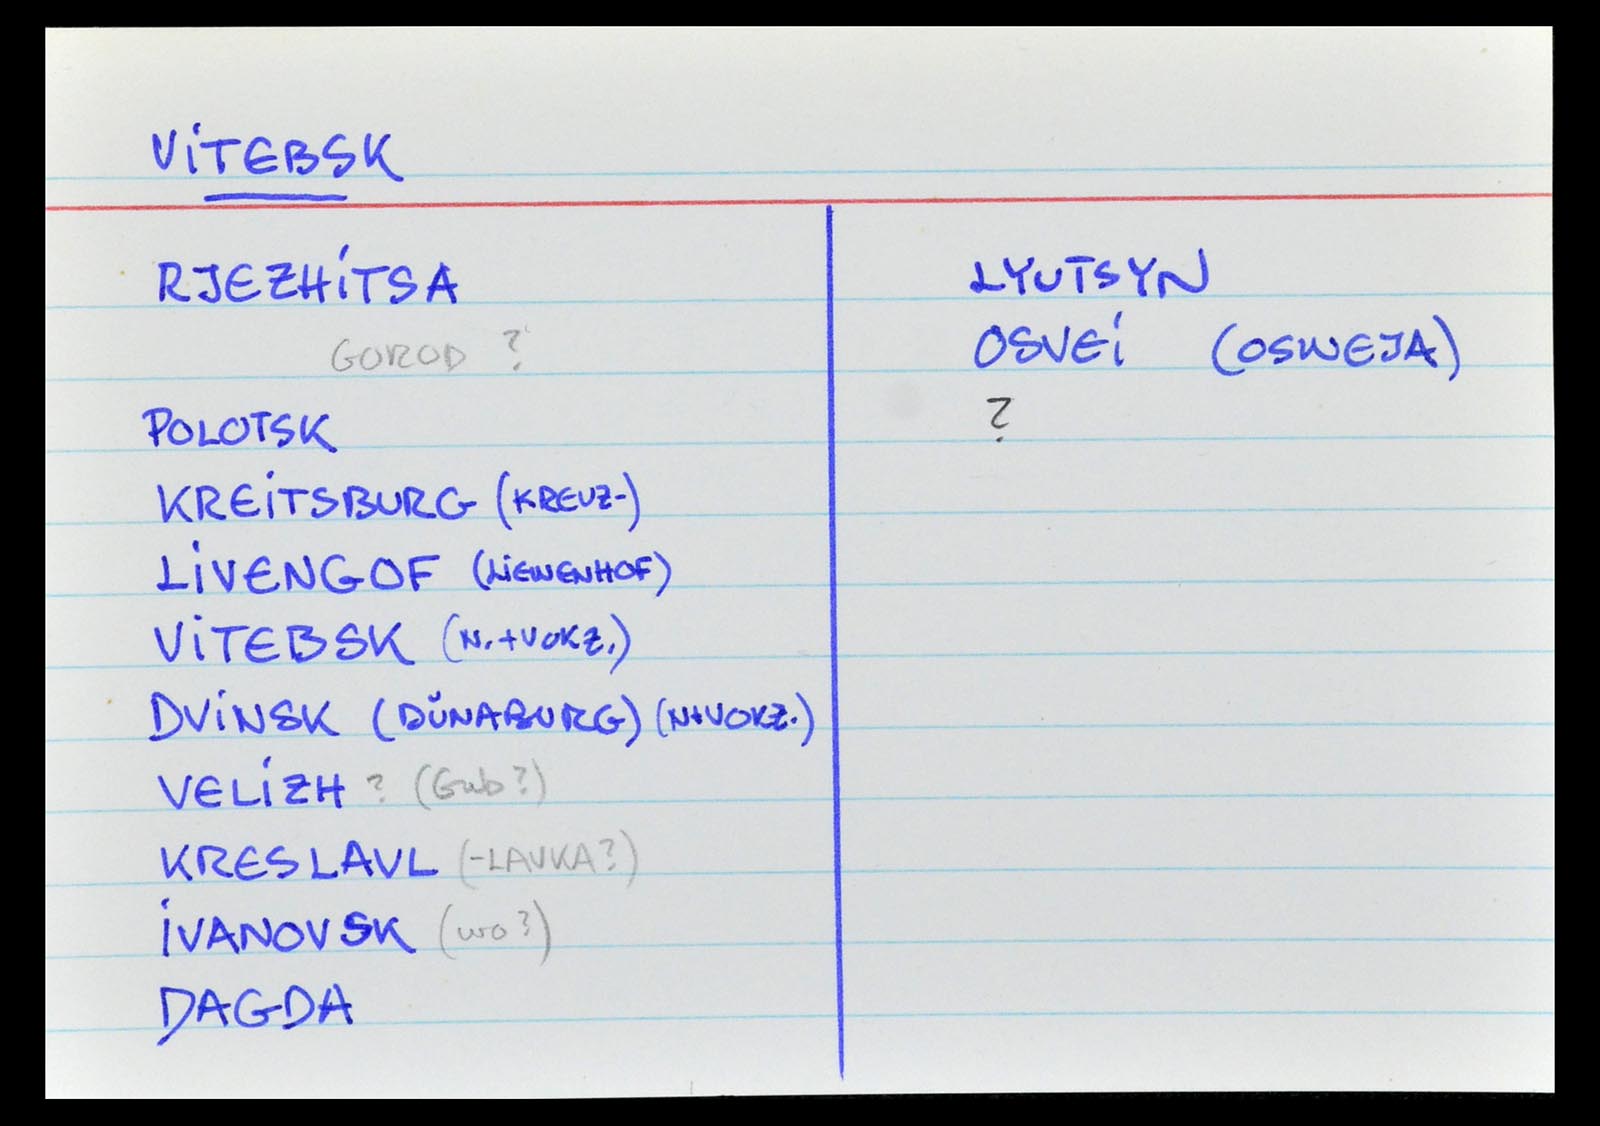 VITEBSK
RJEZHITSA
GOROD ?
POLOTSK
KREITSBURG (KREUZ-)
LIVENGOF (LIEWENHOF)
VITEBSK (N.+VOKZ.)
DVINSK (DÜNABURG) (N+VOKZ.)
VELIZH ? (Gub?)
KRESLAVL (-LAVKA?)
IVANOVSK (wo?)
DAGDA
LYUTSYN
OSVEI (OSWEJA)
?